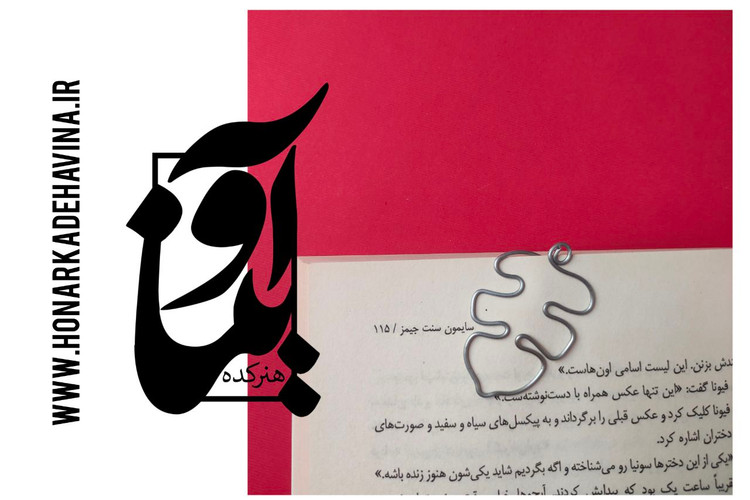 WWW.HONARKADEHAVINA.IR
آوینا
هنرکده
سایمون سنت جیمز / ۱۱۵
بزنن. این لیست اسامی اون‌هاست.»
فیونا گفت: «این تنها عکس همراه با دست‌نوشته‌ست.»
فیونا کلیک کرد و عکس قبلی را برگرداند و به پیکسل‌های سیاه و سفید و صورت‌های
دختران اشاره کرد.
«یکی از این دخترها سونیا رو می‌شناخته و اگه بگردیم شاید یکی‌شون هنوز زنده باشه.»
ساعت یک بود که پیدایش کردند.